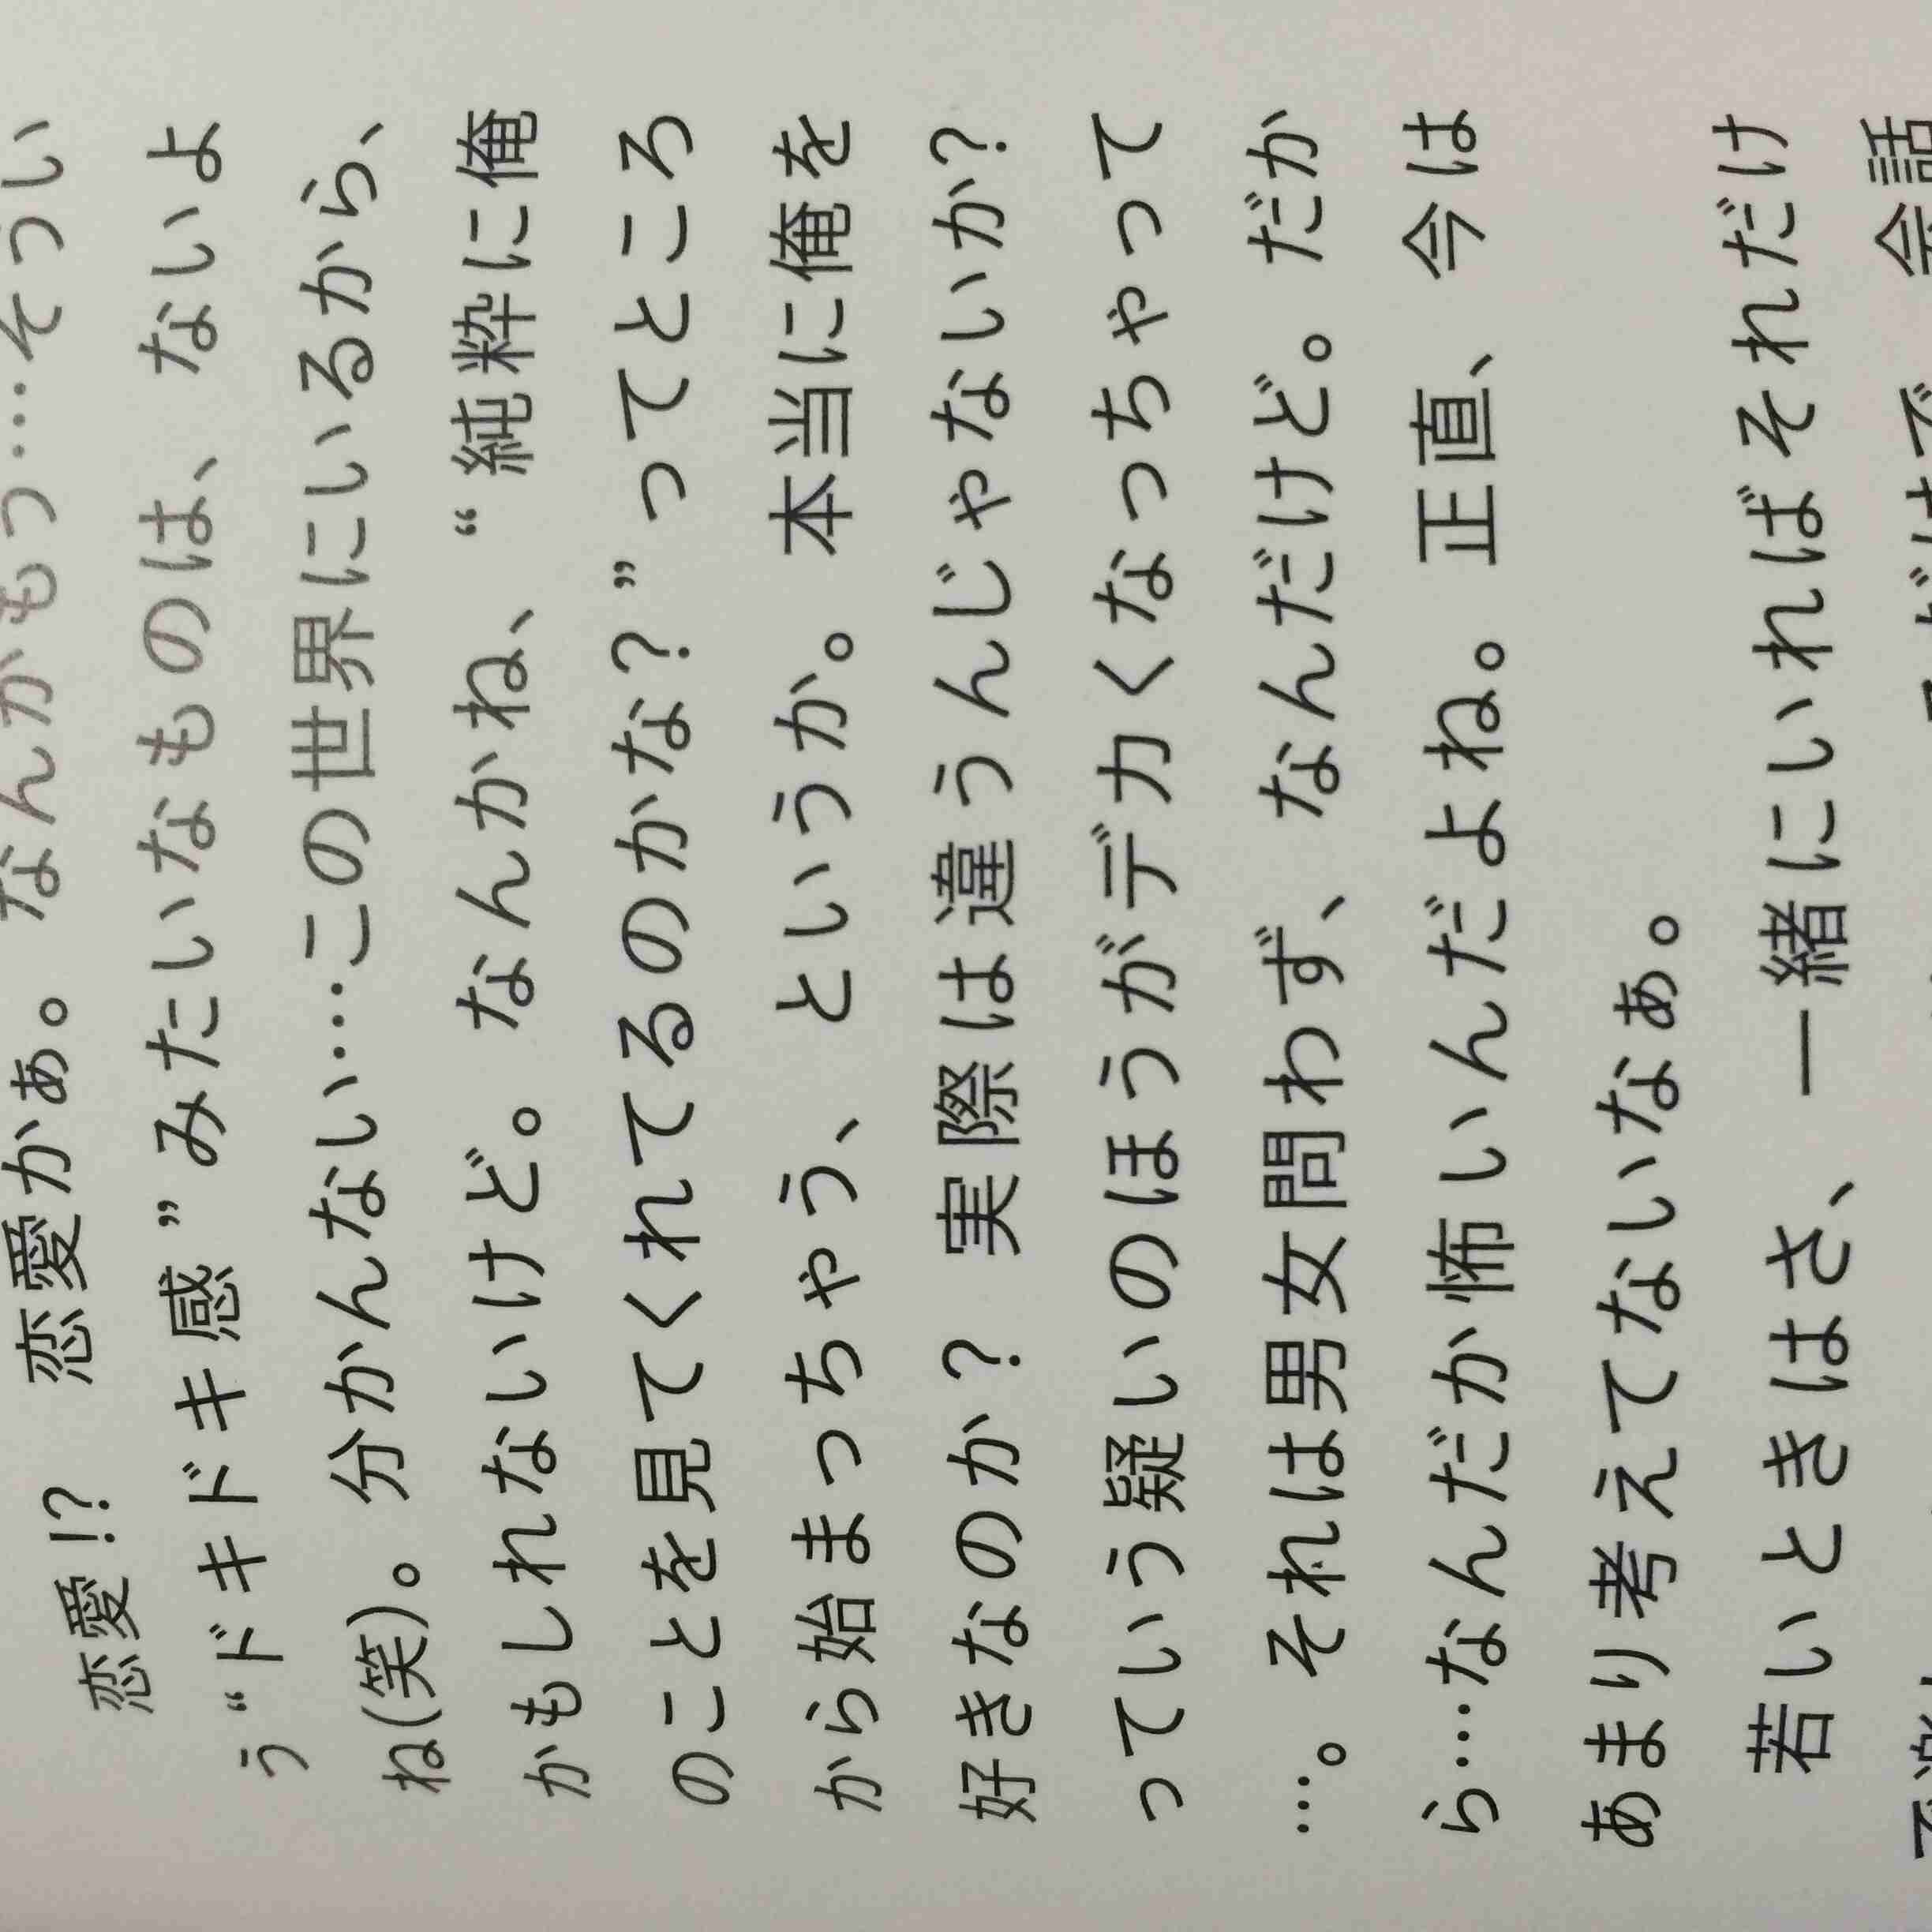 恋愛!? 恋愛かぁ。なんかもう…そうい
う“ドキドキ感”みたいなものは、ないよ
ね(笑)。分かんない…この世界にいるから、
かもしれないけど。なんかね、“純粋に俺
のことを見てくれてるのかな?”ってところ
から始まっちゃう、というか。本当に俺を
好きなのか? 実際は違うんじゃないか?
っていう疑いのほうがデカくなっちゃって
…。それは男女問わず、なんだけど。だか
ら…なんだか怖いんだよね。正直、今は
あまり考えてないなぁ。
若いときはさ、一緒にいればそれだけ